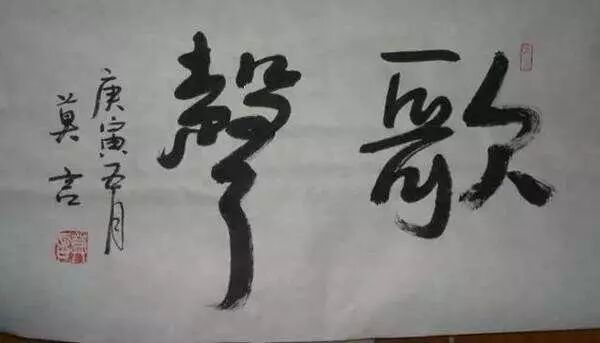 歌聲
庚寅五月
莫言